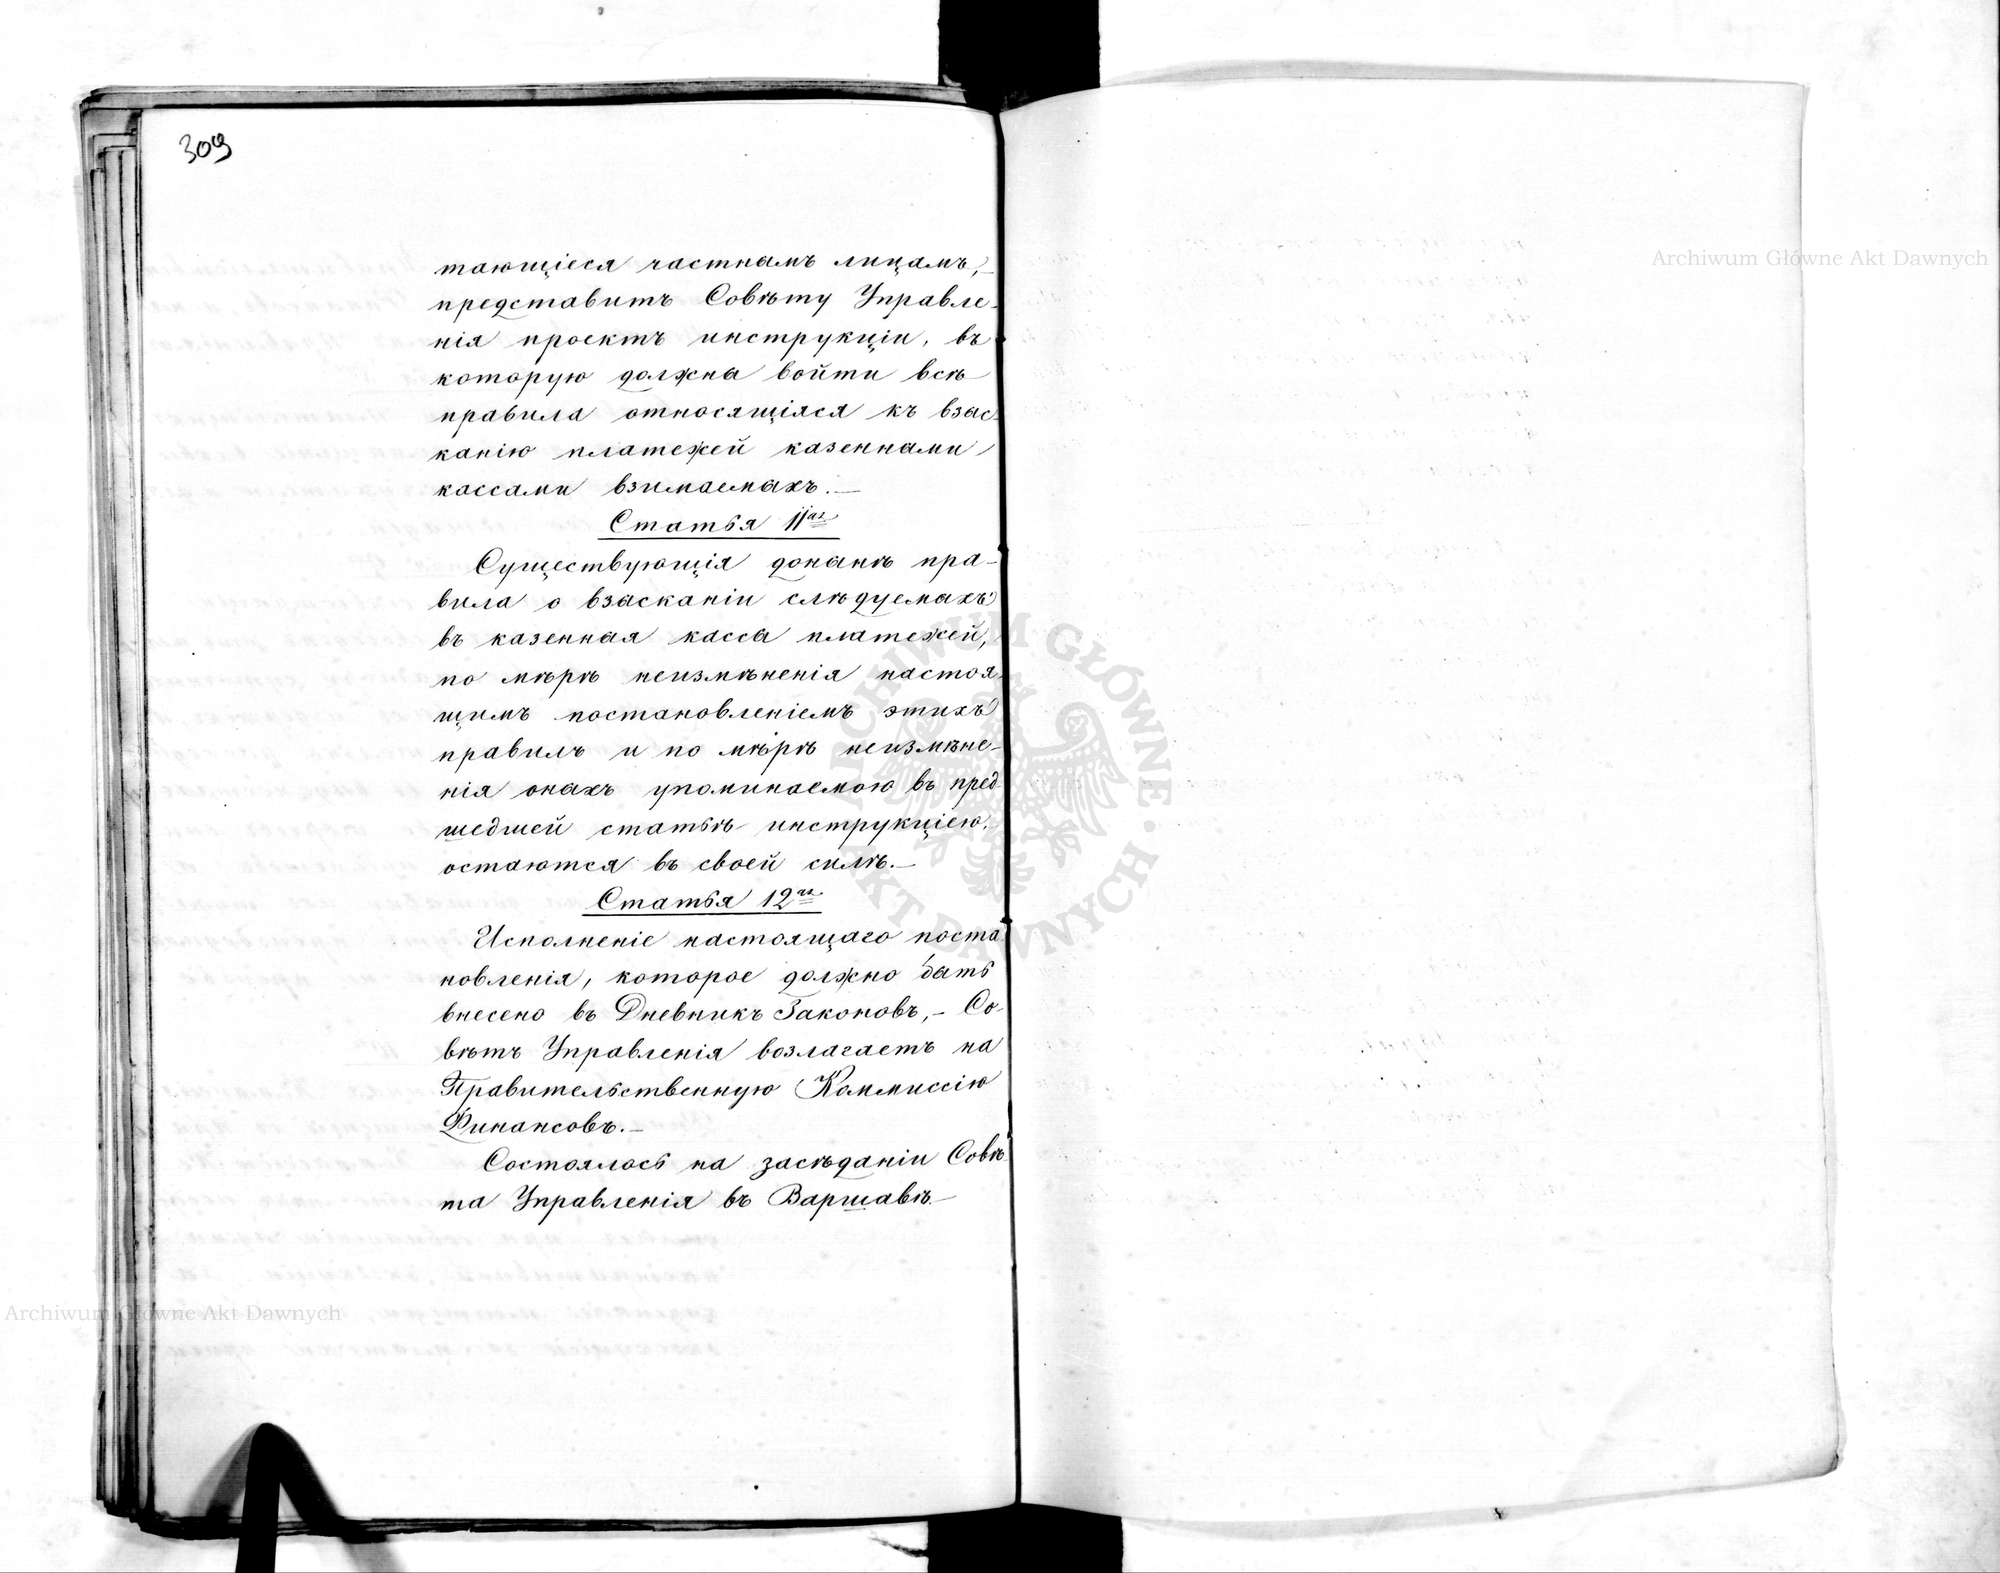 309
тающіеся частнымъ лицамъ,
представитъ Совѣту Управле-
нія проектъ инструкціи, въ
которую должны войти всѣ
правила относящіяся къ взыс
канію платежей казенными
кассами взимаемыхъ.—
Статья 11ая
Существующія донынѣ пра-
вила о взысканіи слѣдуемыхъ
въ казенныя кассы платежей,
по мѣрѣ неизмѣненія настоя
щимъ постановленіемъ этихъ
правилъ и по мѣрѣ неизмѣне-
нія оныхъ упоминаемою въ пред
шедшей статьѣ инструкціею,
остаются въ своей силѣ.—
Статья 12ая
Исполненіе настоящаго поста
новленія, которое должно быть
внесено въ Дневникъ Законовъ,— Со-
вѣтъ Управленія возлагаетъ на
Правительственную Коммиссію
Финансовъ.—
Состоялось на засѣданіи Совѣ
та Управленія въ Варшавѣ—
Archiwum Główne Akt Dawnych
Archiwum Główne Akt Dawnych
ARCHIWUM GŁÓWNE · AKT DAWNYCH ·